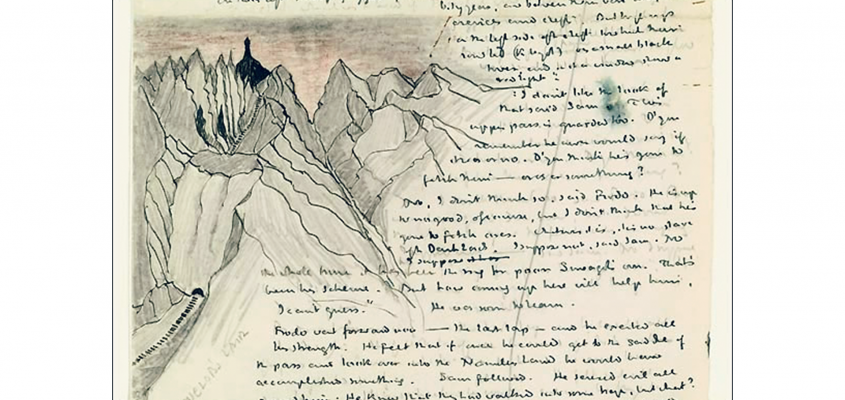 and between them
crevices and clefts. But high up
on the left side
road led was a small black
tower, and in it a window showed a
red light.
'I don't like the look of
that' said Sam. 'This
upper pass is guarded too. D'you
remember he never would say if
it was or no. D'you think he's gone to
fetch them — orcs or something?'
'No, I don't think so,' said Frodo. 'He is up
to no good, of course, but I don't think that he's
gone to fetch orcs. Whatever it is, it is no slave
of the Dark Lord. 'I suppose not,' said Sam. 'No
I suppose
the whole time it has been the ring for poor Smeagol's own. That's
been his scheme. But how coming up here will help him,
I can't guess." He was soon to learn.
Frodo went forward now — the last lap — and he exerted all
his strength. He felt that if once he could get to the saddle of
the pass and look over into the Nameless Land he would have
accomplished something. Sam followed. He sensed evil all
around him. He knew that they had walked into some trap, but what?